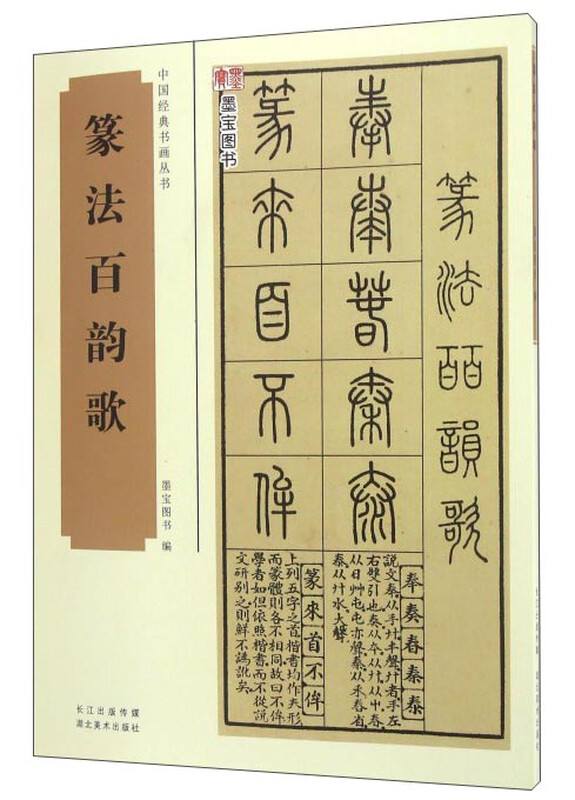 中国经典书画丛书
篆法百韵歌
墨宝图书 编
长江出版传媒
湖北美术出版社
墨宝
墨宝图书
篆法百韻歌
奉奏春秦泰
篆來首不侔
奉奏春秦泰
説文奉从手廾丰聲廾者手左
右雙引也奏从夲从廾从屮春
从日艸屯屯亦聲秦从禾舂省
泰从廾水大聲
篆來首不侔
上列五字之首楷書均作𡗗形
而篆體則各不相同故曰不侔
學者如但依照楷書而不從説
文研别之則鮮不譌訛矣
长江出版传媒
湖北美术出版社